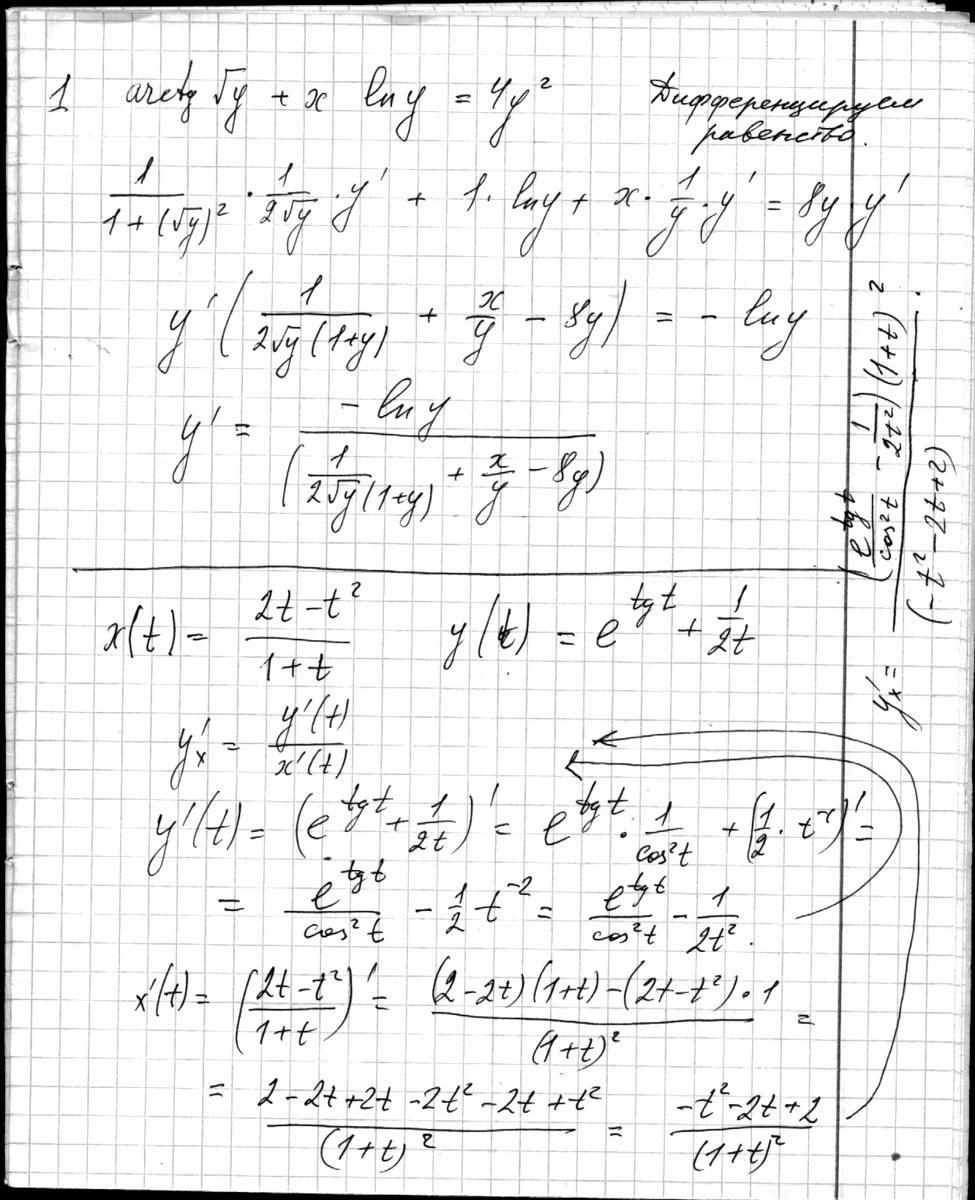 1 arctg √y + x ln y = 4y² Дифференцируем
равенство.
1/(1+(√y)²) · 1/(2√y) · y' + 1 · ln y + x · 1/y · y' = 8y y'
y' (1/(2√y(1+y)) + x/y − 8y) = − ln y
y' = − ln y / (1/(2√y(1+y)) + x/y − 8y)
x(t) = (2t − t²)/(1+t) y(t) = e^(tg t) + 1/(2t)
y'ₓ = y'(t)/x'(t)
y'(t) = (e^(tg t) + 1/(2t))' = e^(tg t) · 1/(cos²t) + (1/2 · t⁻¹)' =
= e^(tg t)/(cos²t) − 1/2 t⁻² = e^(tg t)/(cos²t) − 1/(2t²).
x'(t) = ((2t − t²)/(1+t))' = ((2−2t)(1+t) − (2t−t²) · 1)/(1+t)² =
= (2 − 2t + 2t − 2t² − 2t + t²)/(1+t)² = (−t² − 2t + 2)/(1+t)²
y'ₓ = (e^(tg t)/(cos²t) − 1/(2t²))(1+t)² / (−t² − 2t + 2).